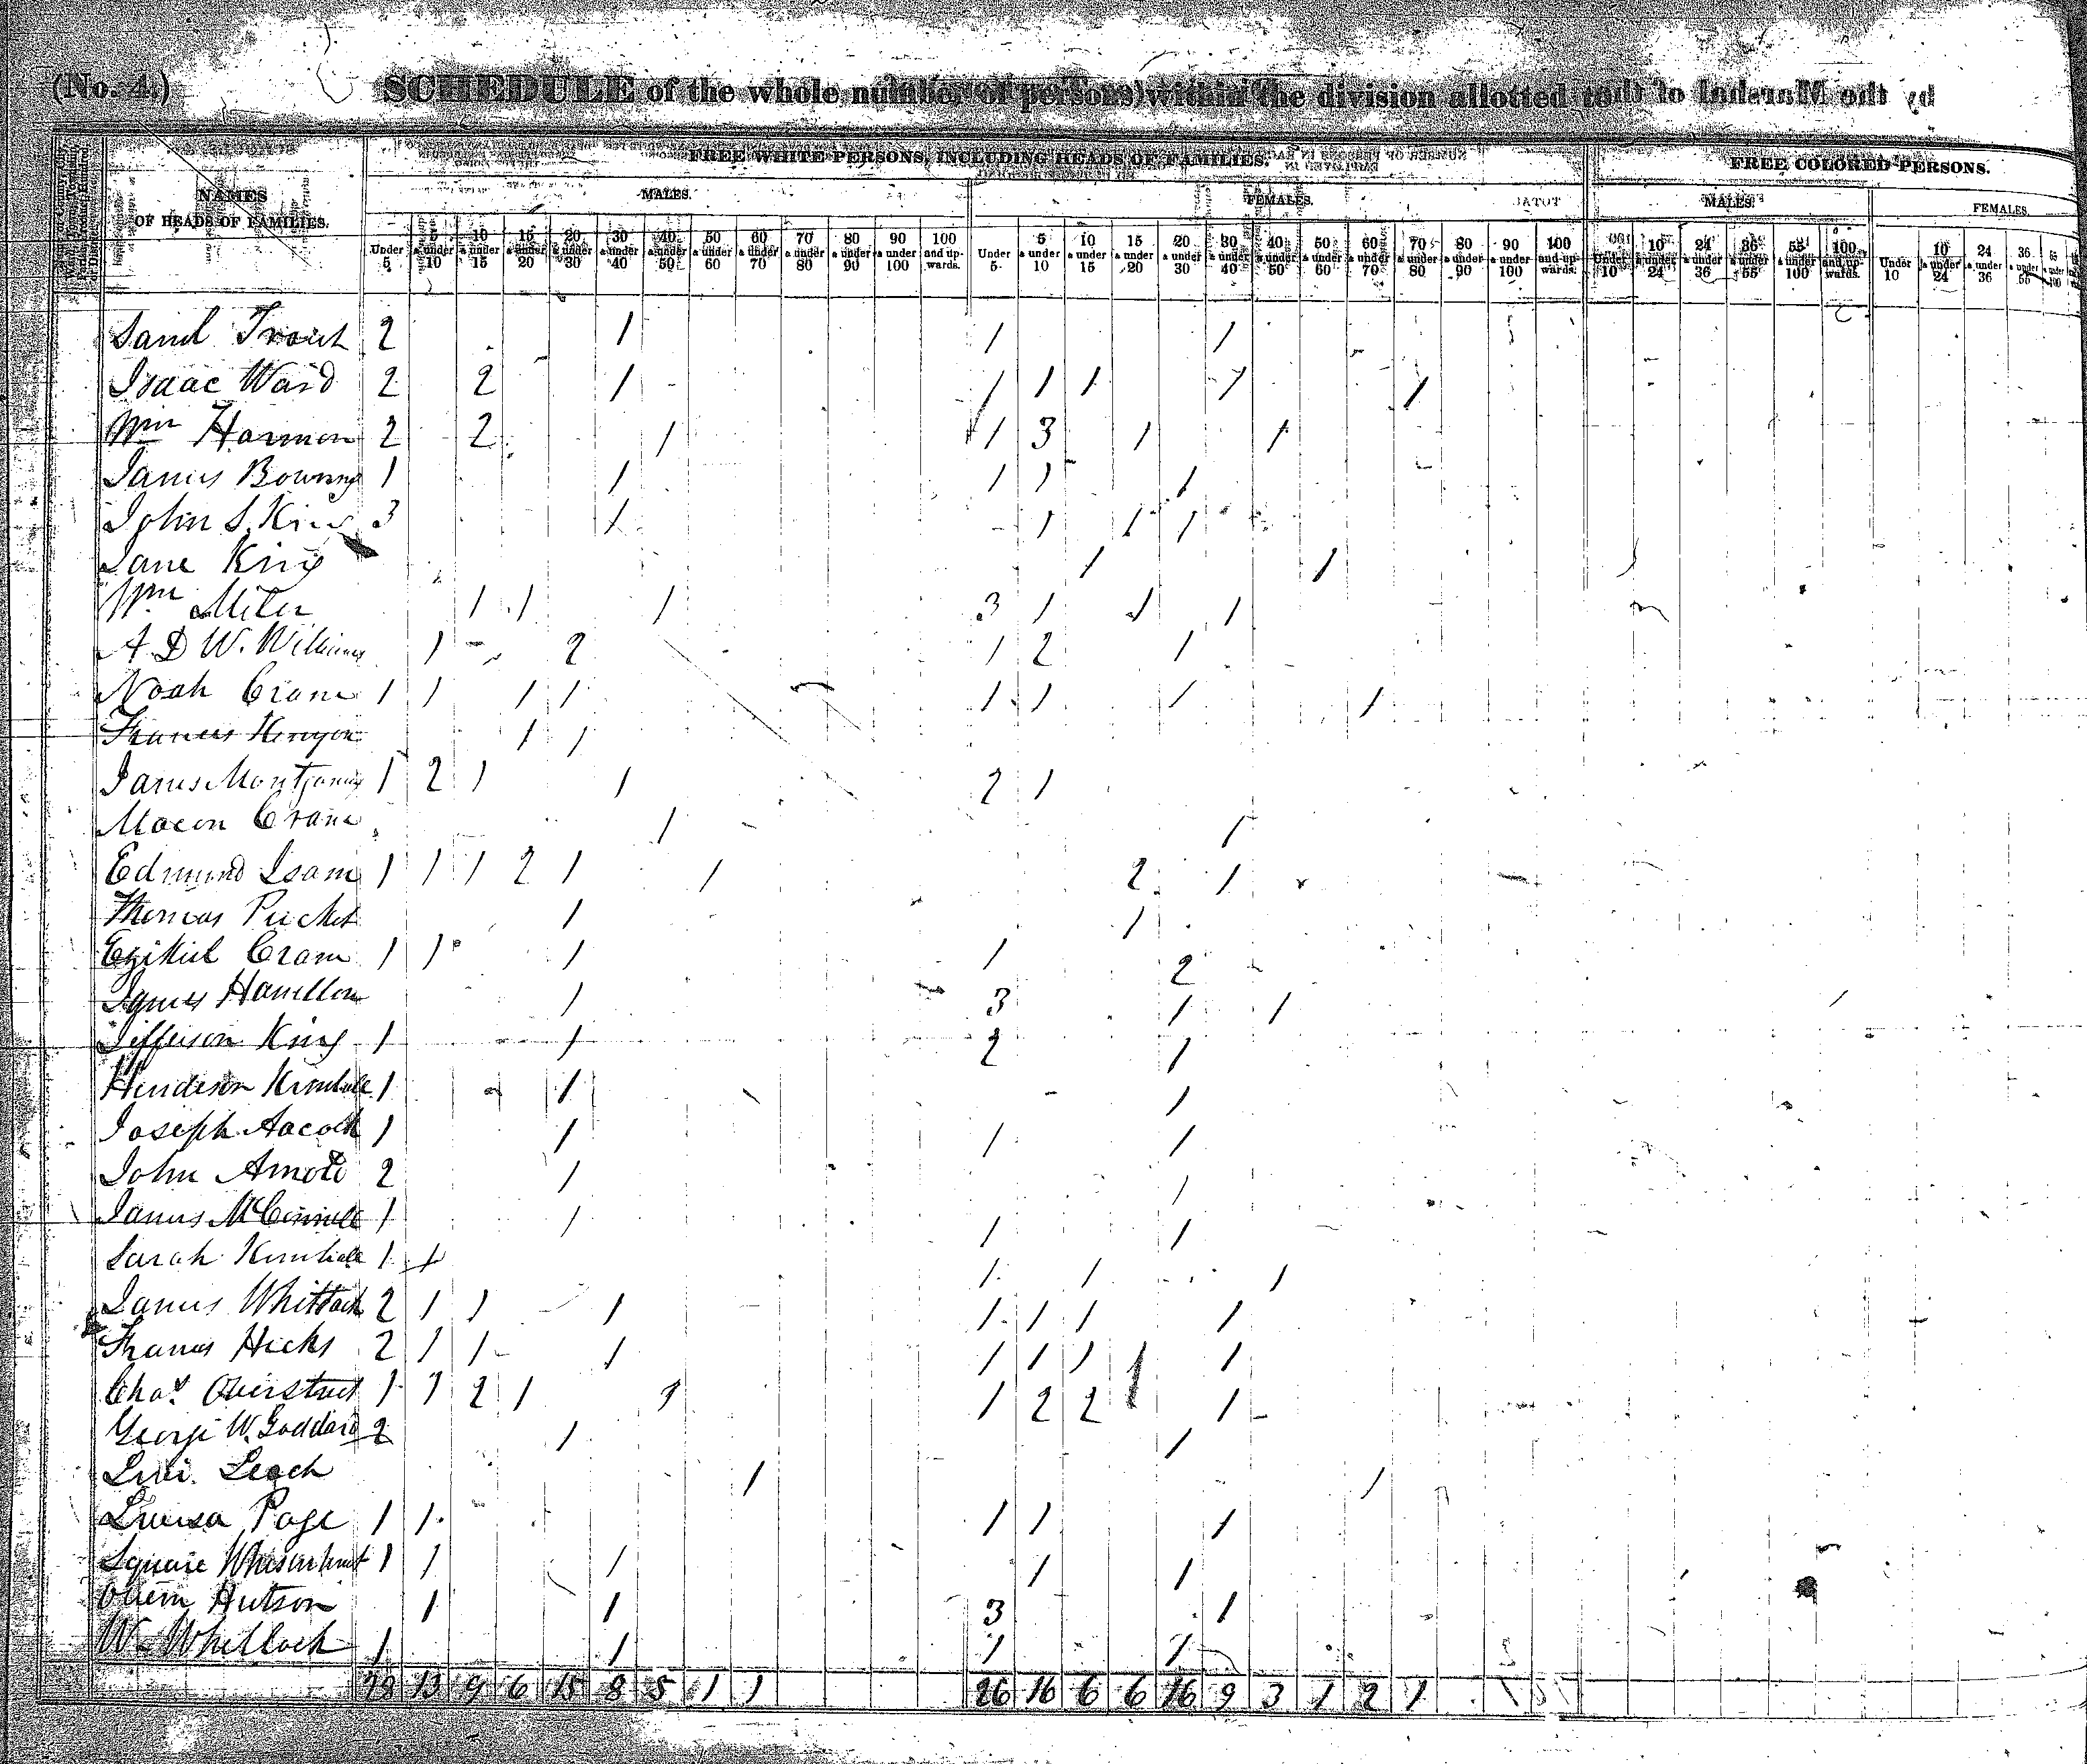 (No. 4.) SCHEDULE of the whole number of persons within the division allotted to by the Marshal of the
NAMES OF HEADS OF FAMILIES.
FREE WHITE PERSONS, INCLUDING HEADS OF FAMILIES.
FREE COLORED PERSONS.
MALES. FEMALES. MALES. FEMALES.
Under 5 5 & under 10 10 & under 15 15 & under 20 20 & under 30 30 & under 40 40 & under 50 50 & under 60 60 & under 70 70 & under 80 80 & under 90 90 & under 100 100 and upwards. Under 5 5 & under 10 10 & under 15 15 & under 20 20 & under 30 30 & under 40 40 & under 50 50 & under 60 60 & under 70 70 & under 80 80 & under 90 90 & under 100 100 and upwards. Under 10 10 & under 24 24 & under 36 36 & under 55 55 & under 100 100 and upwards. Under 10 10 & under 24 24 & under 36 36 & under 55
Saml Trout 2 1 1 1
Isaac Ward 2 2 1 1 1 1 1 1
Wm Harmon 2 2 1 1 3 1 1
James Bowing 1 1 1 1 1
John S. King 3 1 1 1 1
Jane King 1 1
Wm Miler 1 1 1 3 1 1 1
A D W. Williams 1 2 1 2 1
Noah Crane 1 1 1 1 1 1 1 1
Francis Kenyon 1 1
James Montgomery 1 2 1 1 2 1
Macon Crane 1 1
Edmund Isam 1 1 1 2 1 1 2 1
Thomas Pucket 1 1
Ezikiel Crane 1 1 1 1 2
James Hamilton 1 3 1 1
Jefferson King 1 1 2 1
Henderson Kimball 1 1 1
Joseph Aacock 1 1 1 1
John Arnold 2 1 1
James McConnell 1 1 1 1
Sarah Kimball 1 1 1 1 1
James Whitlock 2 1 1 1 1 1 1 1
Francis Hicks 2 1 1 1 1 1 1 1 1
Chas. Overstreet 1 1 2 1 1 1 2 2 1
George W. Goddard 2 1 1
Levi Leach 1 1
Louisa Page 1 1 1 1 1
Squire Whisenhunt 1 1 1 1 1
Hutson 1 1 3 1
W. Whitlock 1 1 1 1
28 13 9 6 15 8 5 1 1 26 16 6 6 16 9 3 1 2 1